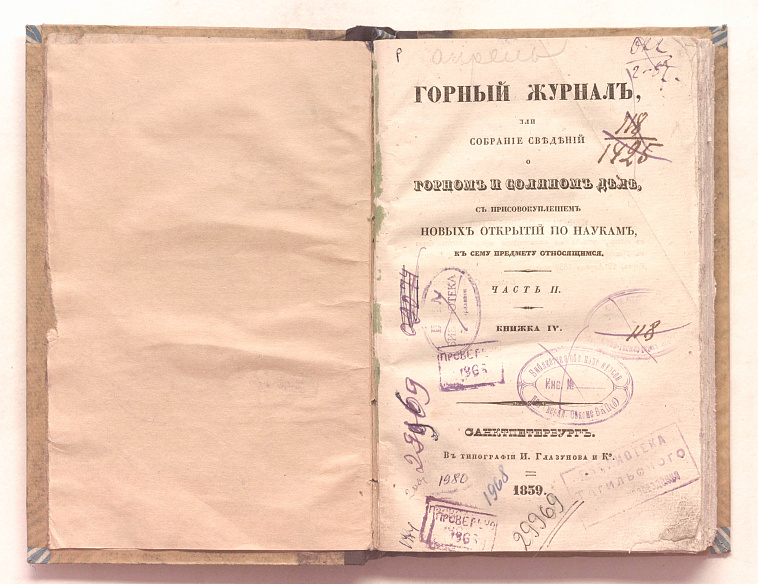 апрель
Р
ГОРНЫЙ ЖУРНАЛЪ,
ИЛИ
СОБРАНІЕ СВѢДѢНІЙ
О
ГОРНОМЪ И СОЛЯНОМЪ ДѢЛѢ,
СЪ ПРИСОВОКУПЛЕНІЕМЪ
НОВЫХЪ ОТКРЫТІЙ ПО НАУКАМЪ,
КЪ СЕМУ ПРЕДМЕТУ ОТНОСЯЩИМСЯ.
ЧАСТЬ II.
КНИЖКА IV.
САНКТПЕТЕРБУРГЪ.
Въ типографіи И. Глазунова и Ко.
1839.
118
1425
118
БИБЛИОТЕКА
ПРОВЕРЕНО
1963
Инв. №
29969
1980
1968
29969
ПРОВЕРЕНО
1963
БИБЛИОТЕКА
ТАГИЛЬСКОГО